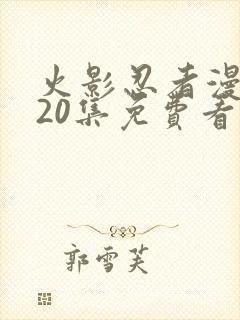 火影忍者漫
20集免费看
郭雪芙